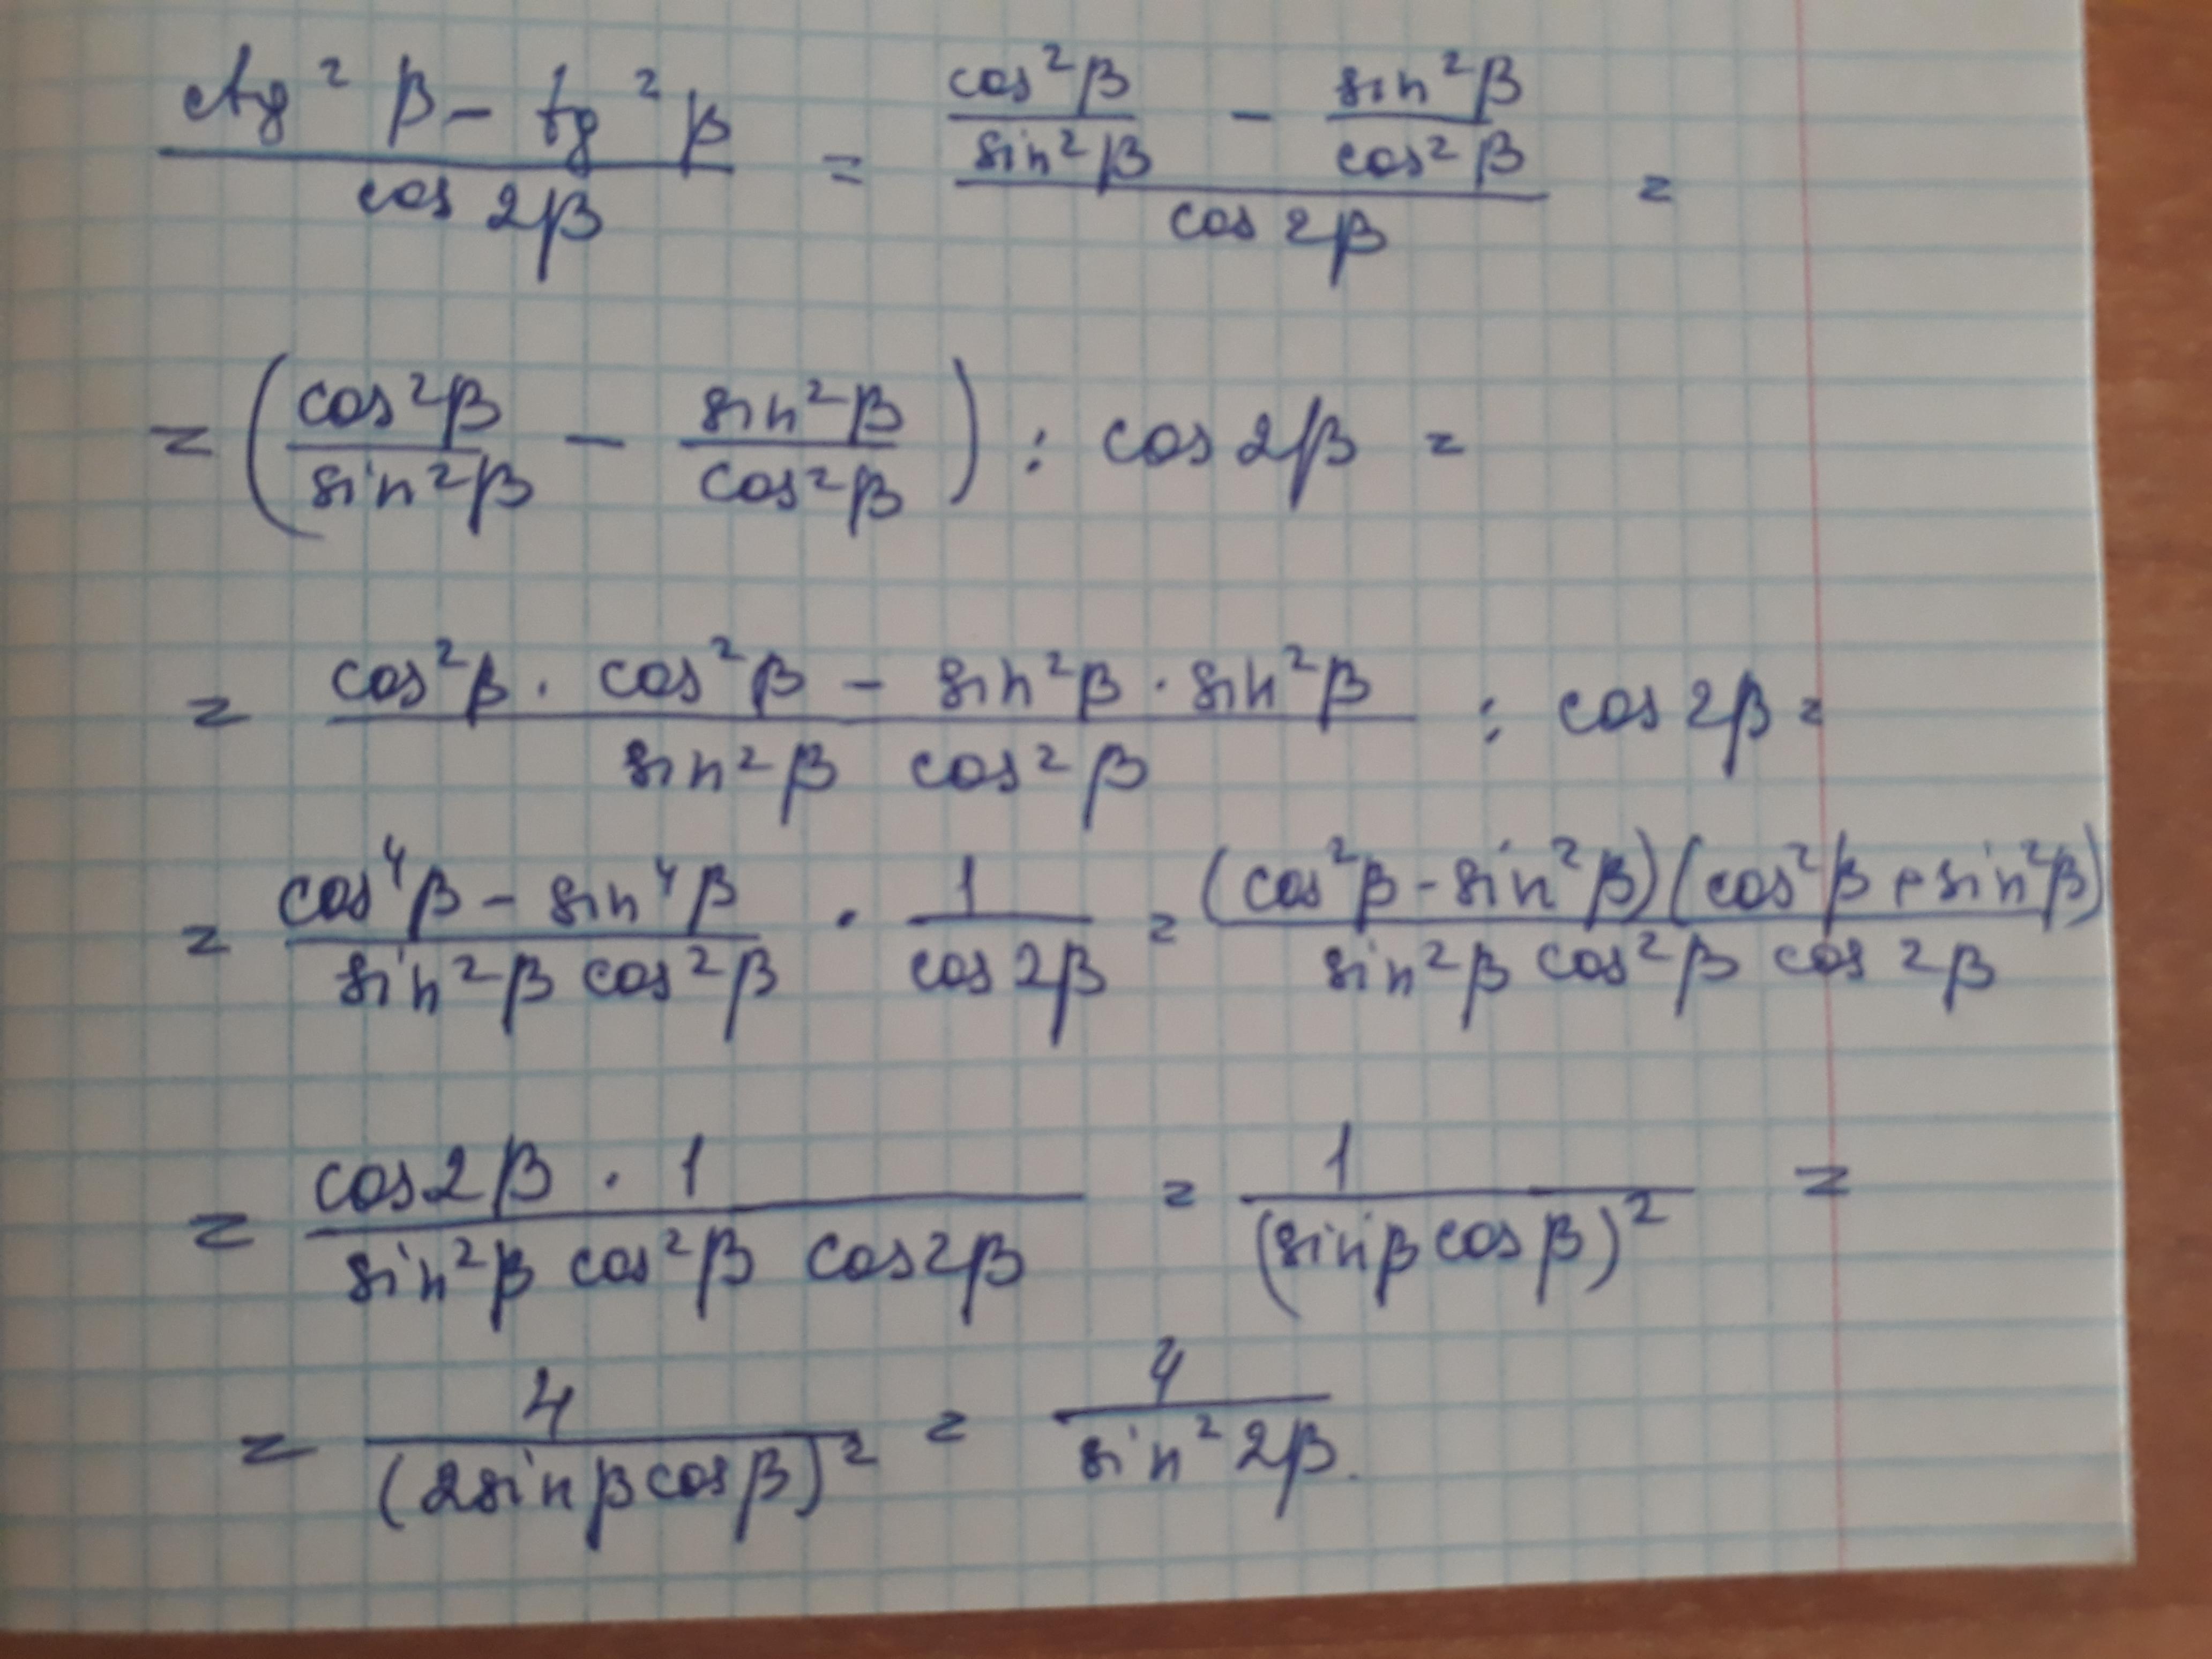 (ctg² β - tg² β)/(cos 2β) = (cos²β/sin²β - sin²β/cos²β)/(cos 2β) =
= (cos²β/sin²β - sin²β/cos²β) : cos 2β =
= (cos²β · cos²β - sin²β · sin²β)/(sin²β cos²β) : cos 2β =
= (cos⁴β - sin⁴β)/(sin²β cos²β) · 1/(cos 2β) = ((cos²β - sin²β)(cos²β + sin²β))/(sin²β cos²β cos 2β)
= (cos2β · 1)/(sin²β cos²β cos2β) = 1/(sinβ cosβ)² =
= 4/(2sinβcosβ)² = 4/(sin² 2β).